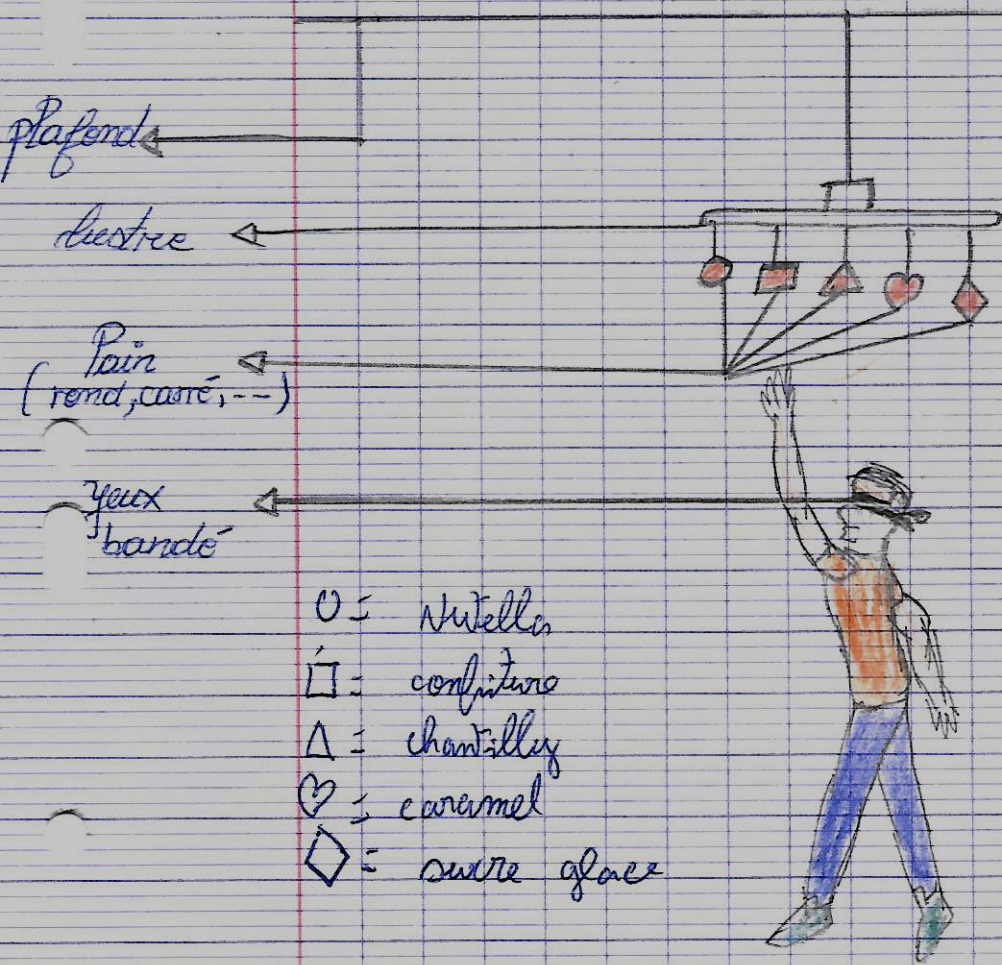 plafond
lustre
Pain
(rond, carré, --)
yeux
bandé
O = Nutella
□ = confiture
△ = chantilly
♡ = caramel
◇ = sucre glace